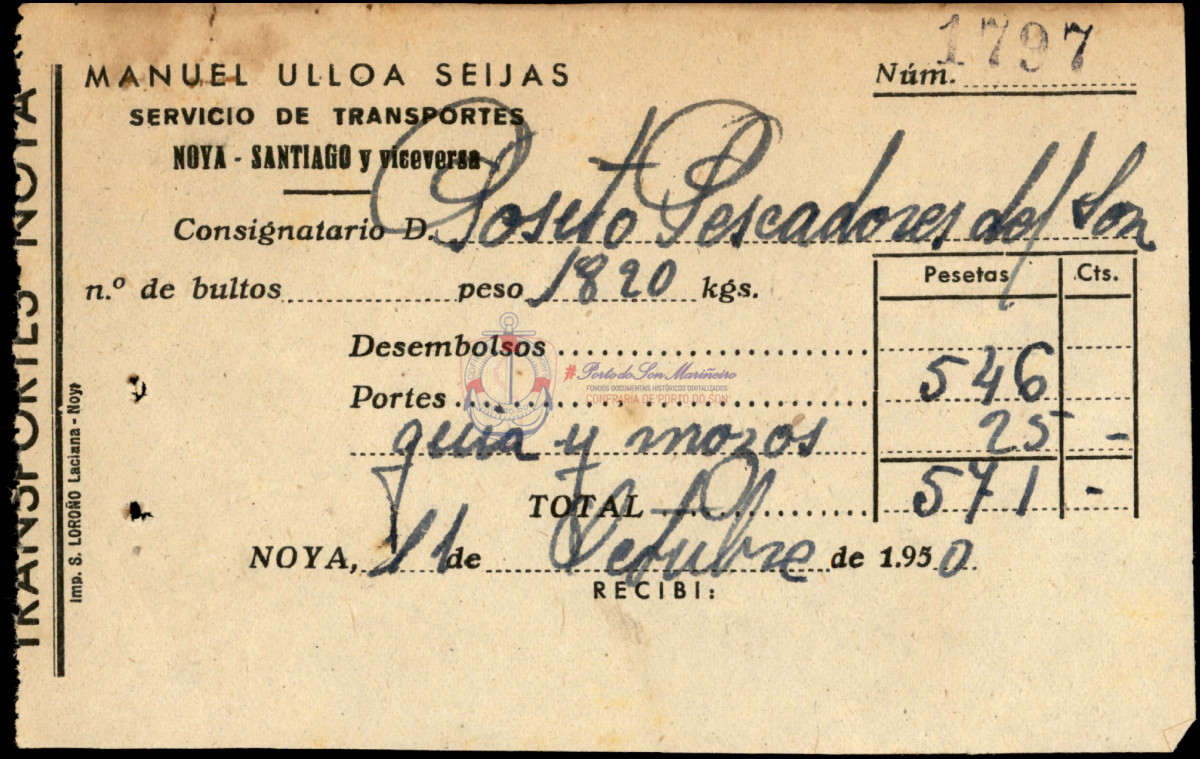 MANUEL ULLOA SEIJAS
SERVICIO DE TRANSPORTES
NOYA - SANTIAGO y viceversa
Núm. 1797
Consignatario D. Posito Pescadores del Son
n.º de bultos peso 1820 kgs.
Pesetas Cts.
Desembolsos
Portes 546
guia y mozos 25 -
TOTAL 571 -
NOYA, 11 de Octubre de 1.950
RECIBI:
TRANSPORTES - NOYA
Imp. S. LOROÑO Laciana - Noya
#Porto do Son Mariñeiro
FONDOS DOCUMENTAIS HISTÓRICOS DIXITALIZADOS
CONFRARÍA DE PORTO DO SON